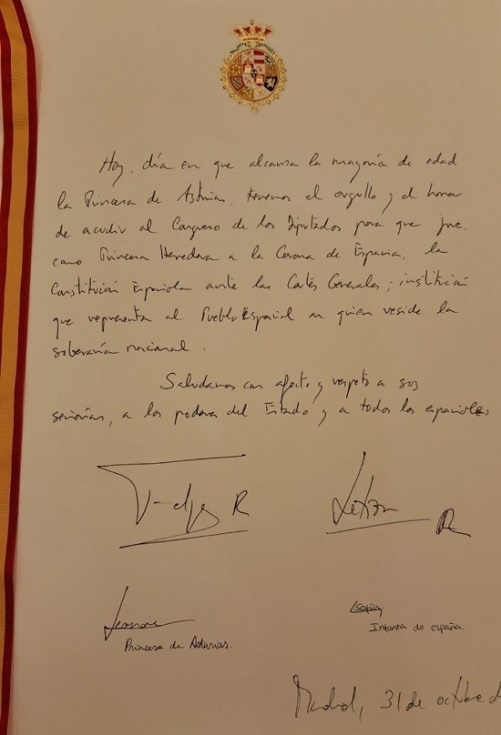 Hoy, día en que alcanza la mayoría de edad
la Princesa de Asturias, tenemos el orgullo y el honor
de acudir al Congreso de los Diputados para que jure,
como Princesa Heredera a la Corona de España, la
Constitución Española ante las Cortes Generales; institución
que representa al Pueblo Español en quien reside la
soberanía nacional.
Saludamos con afecto y respeto a sus
señorías, a los poderes del Estado y a todos los españoles
Felipe R
Letizia R
Leonor
Princesa de Asturias.
Sofía
Infanta de España
Madrid, 31 de octubre d